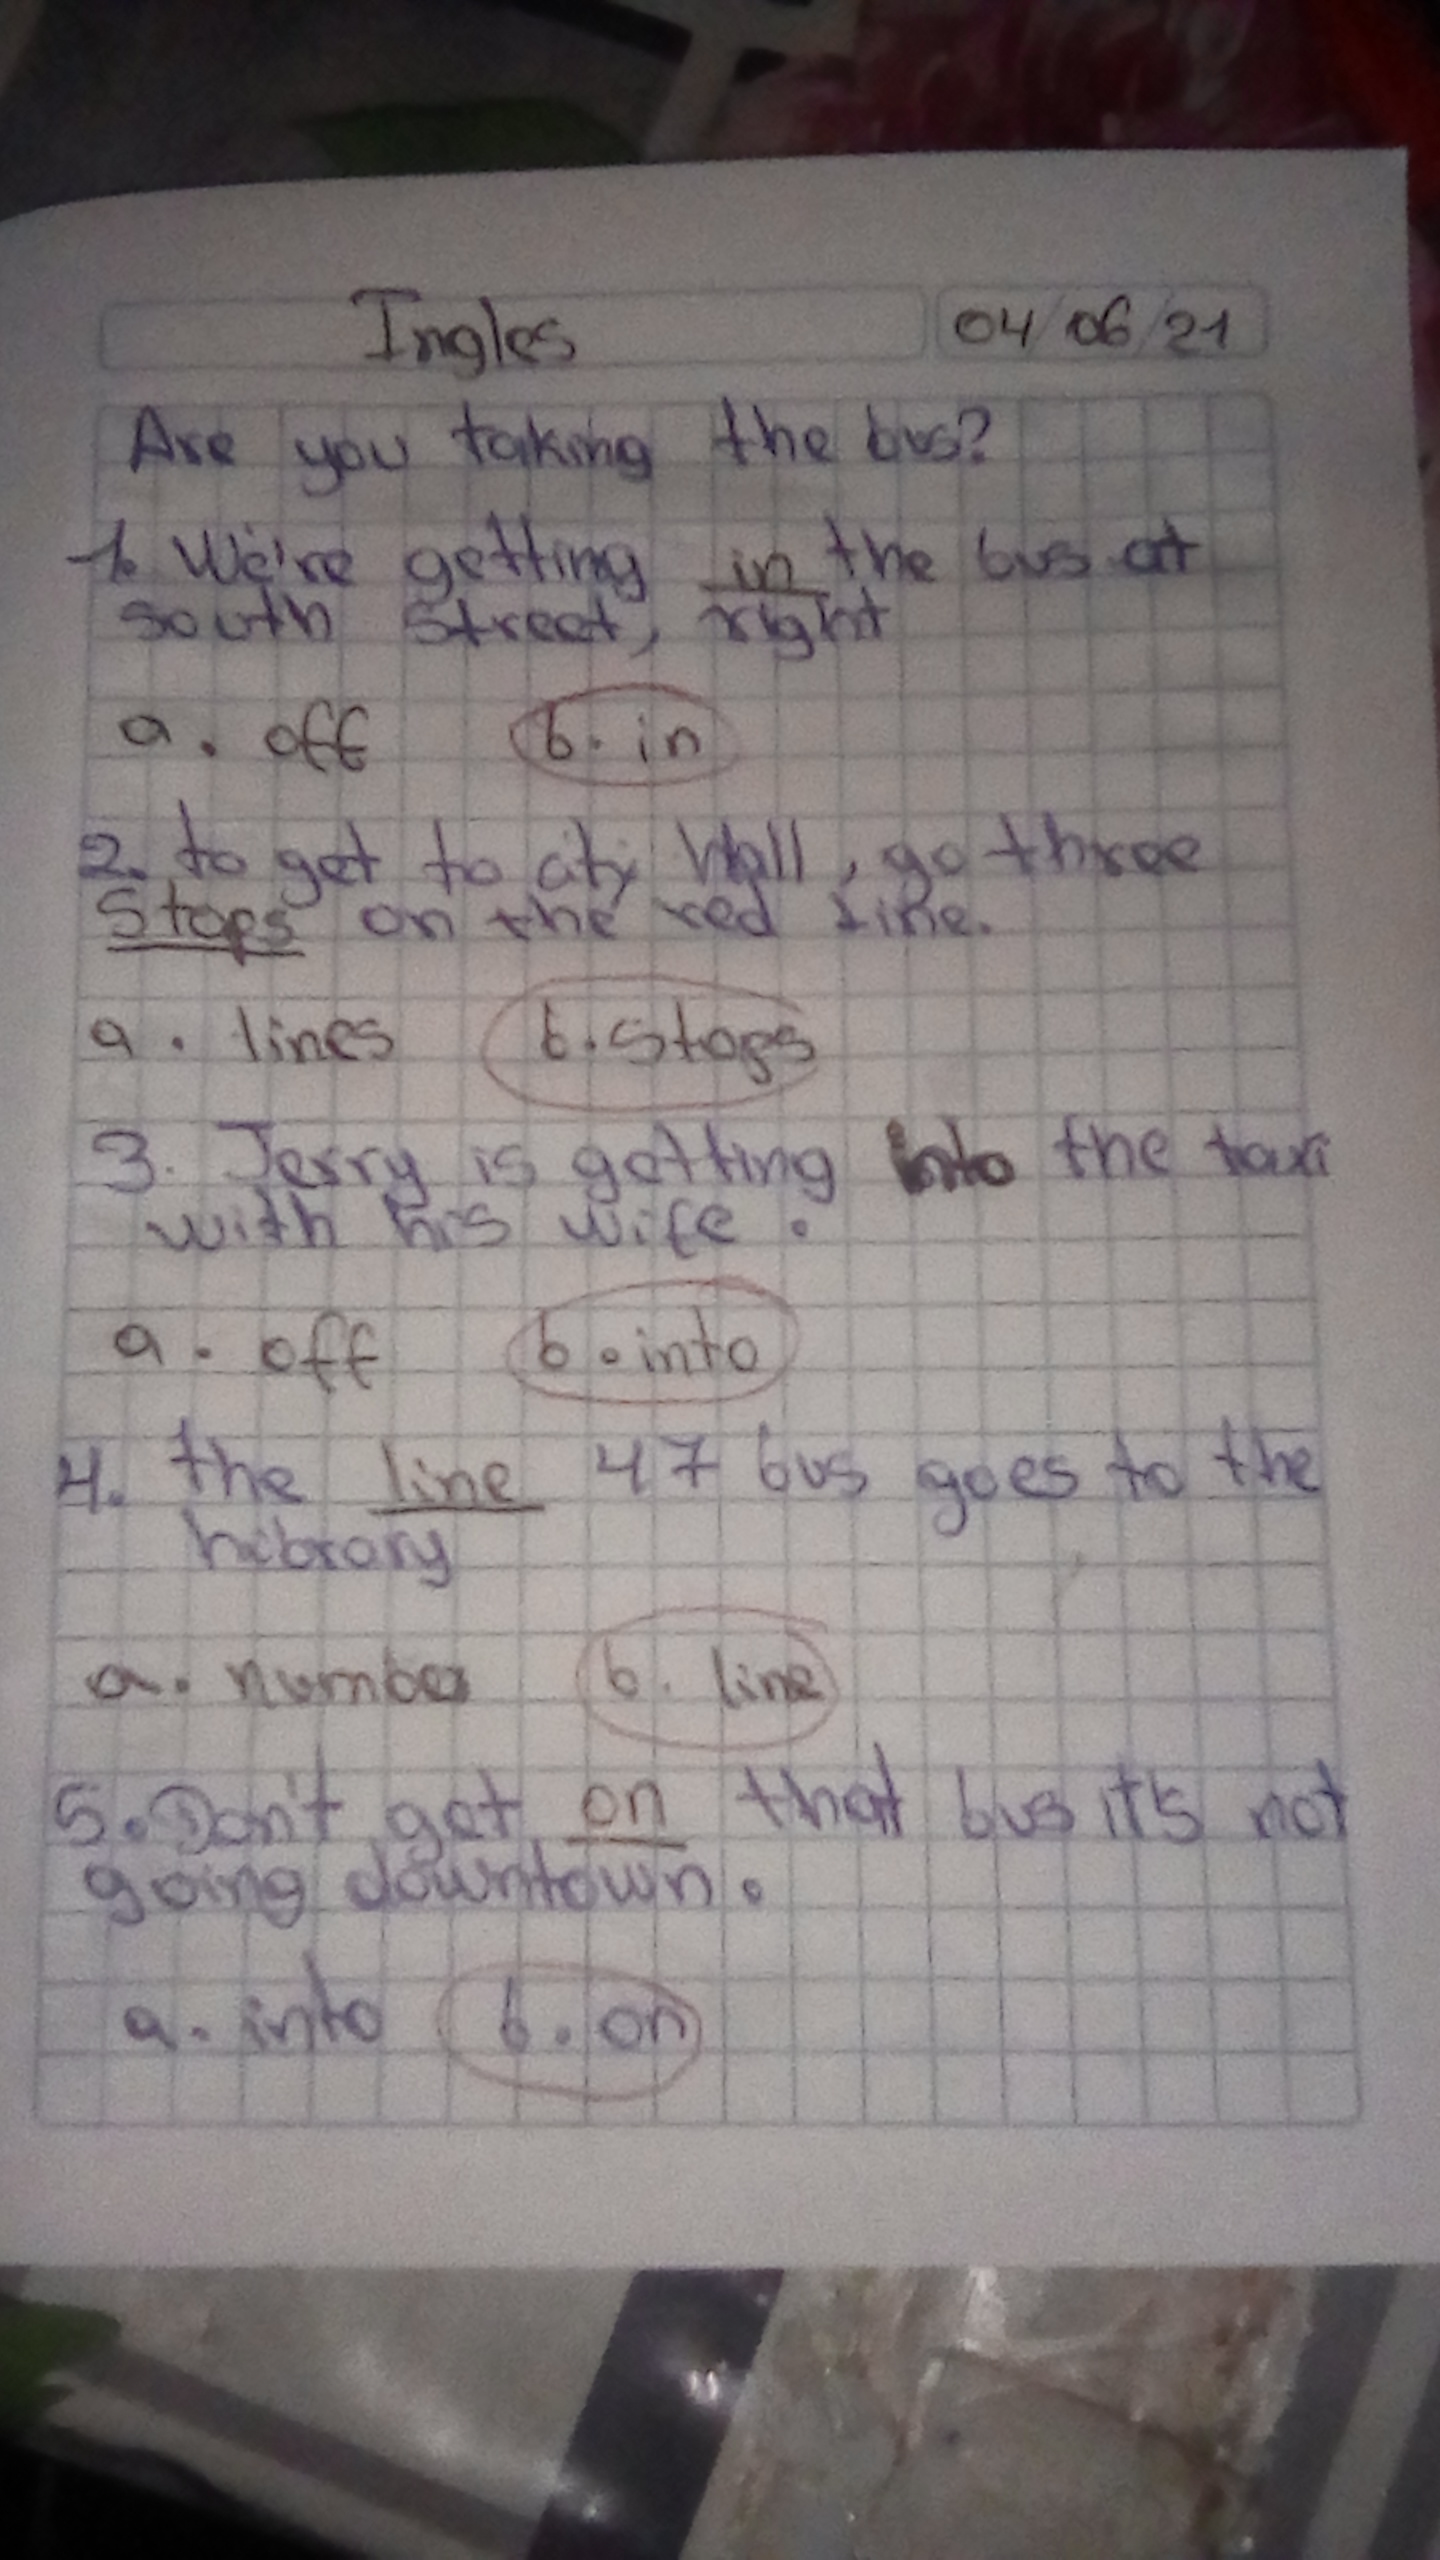 Ingles 04/06/21
Are you taking the bus?
1. We're getting in the bus at
south street, right
a. off b. in
2. to get to city Hall, go three
Stops on the red line.
a. lines b. Stops
3. Jerry is getting into the taxi
with his wife.
a. off b. into
4. the line 47 bus goes to the
library
a. number b. line
5. Don't get on that bus it's not
going downtown.
a. into b. on